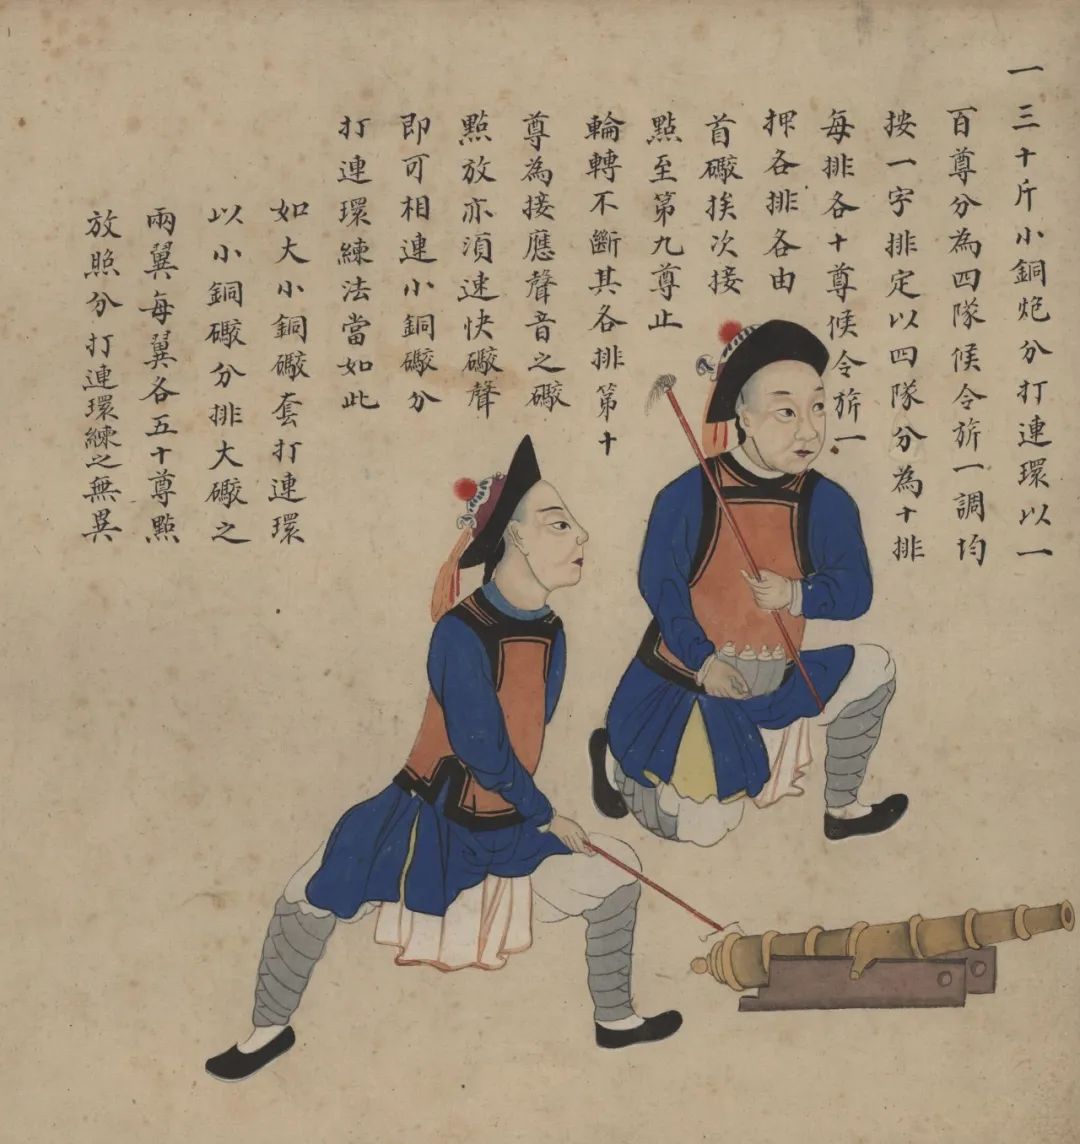 一三十斤小銅炮分打連環以一
百尊分為四隊候令旂一調均
按一字排定以四隊分為十排
每排各十尊候令旂一
押各排各由
首礮挨次接
點至第九尊止
輪轉不斷其各排第十
尊為接應聲音之礮
點放亦湏速快礮聲
即可相連小銅礮分
打連環練法當如此
如大小銅礮套打連環
以小銅礮分排大礮之
兩翼每翼各五十尊點
放照分打連環練之無異